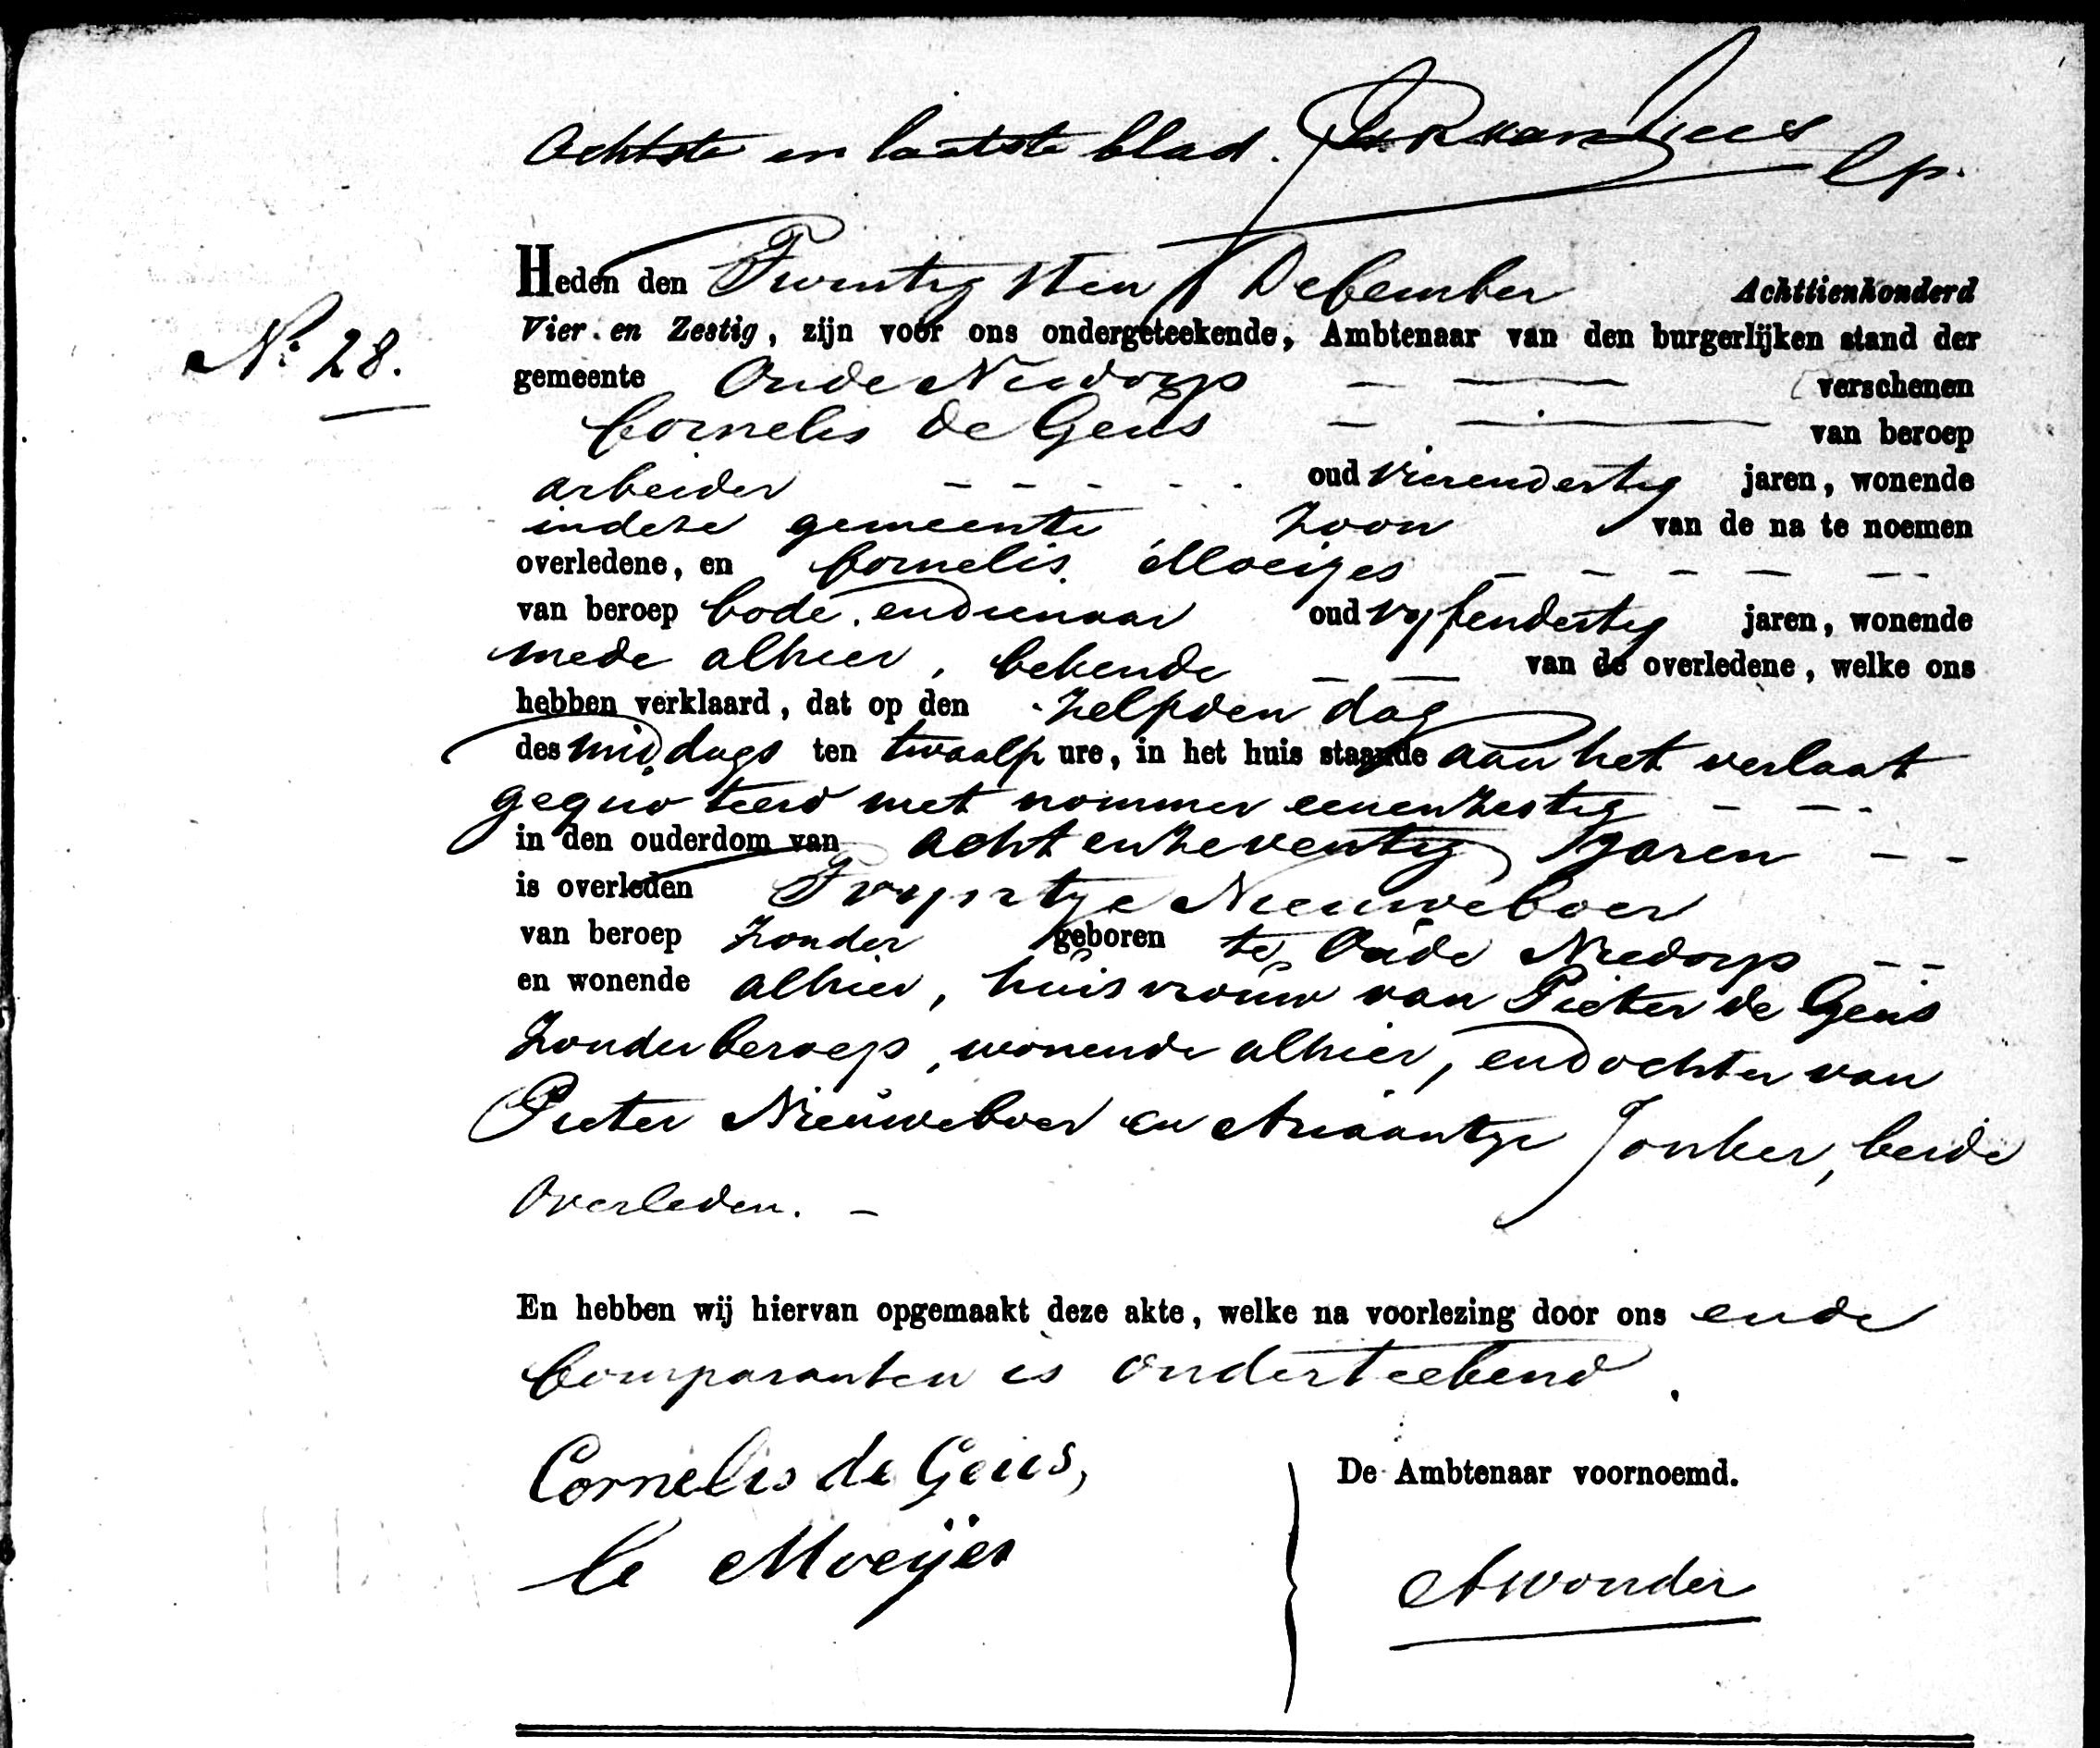 Achtste en laatste blad.
Heden den Twintigsten December Achttienhonderd
N.o 28.
Vier en Zestig, zijn voor ons ondergeteekende, Ambtenaar van den burgerlijken stand der
gemeente Oude Niedorp verschenen
Cornelis de Geus van beroep
arbeider oud vierendertig jaren, wonende
in deze gemeente zoon van de na te noemen
overledene, en Cornelis Moeijes
van beroep bode en dienaar oud vyfendertig jaren, wonende
mede alhier, bekende van de overledene, welke ons
hebben verklaard, dat op den zelfden dag
des middags ten twaalf ure, in het huis staande aan het verlaat
gequoteerd met nommer eenenzestig
in den ouderdom van acht en zeventig jaren
is overleden Nieuweboer
van beroep zonder geboren te Oude Niedorp
en wonende alhier, huisvrouw van Pieter de Geus
zonder beroep, wonende alhier, en dochter van
Pieter Nieuweboer en Ariaantje Jonker, beide
Overleden.
En hebben wij hiervan opgemaakt deze akte, welke na voorlezing door ons en de
Comparanten is onderteekend.
Cornelis de Geus,
De Ambtenaar voornoemd.
C Moeijes
A Wonder